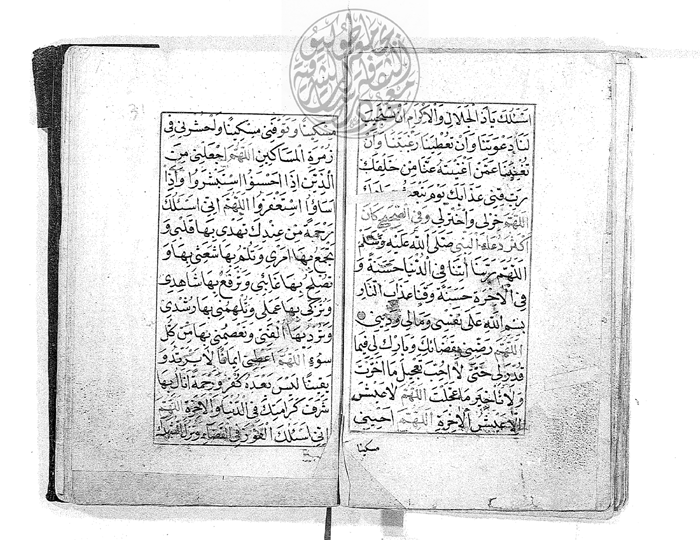 اسئلك ياذا الجلال والاكرام ان تستجيب
لنا دعوتنا وان تعطينا رغبتنا وان
تغنينا عمن اغنيته عنا من خلقك
رب قنى عذابك يوم تبعث عبادك
اللهم خر لى واختر لى وفى الصحيح كان
اكثر دعاء النبى صلى الله عليه وسلم
اللهم ربنا اتنا فى الدنيا حسنة و
فى الاخرة حسنة وقنا عذاب النار
بسم الله على نفسى ومالى ودينى
اللهم رضنى بقضائك وبارك لى فيما
قدر لى حتى لا احب تعجيل ما اخرت
ولا تاخير ما عجلت اللهم لا عيش
الا عيش الاخرة اللهم احينى
مسكينا
مسكينا وتوفنى مسكينا واحشرنى فى
زمرة المساكين اللهم اجعلنى من
الذين اذا احسنوا استبشروا واذا
اساؤا استغفروا اللهم انى اسئلك
رحمة من عندك تهدى بها قلبى و
تجمع بها امرى وتلم بها شعثى و
تصلح بها غائبى وترفع بها شاهدى
وتزكى بها عملى وتلهمنى بها رشدى
وترد بها الفتى وتعصمنى بها من كل
سوء اللهم اعطنى ايمانا لا يرتد و
يقينا ليس بعده كفر ورحمة انال بها
شرف كرامتك فى الدنيا والاخرة اللهم
انى اسئلك الفوز فى القضاء ونزل الشهداء